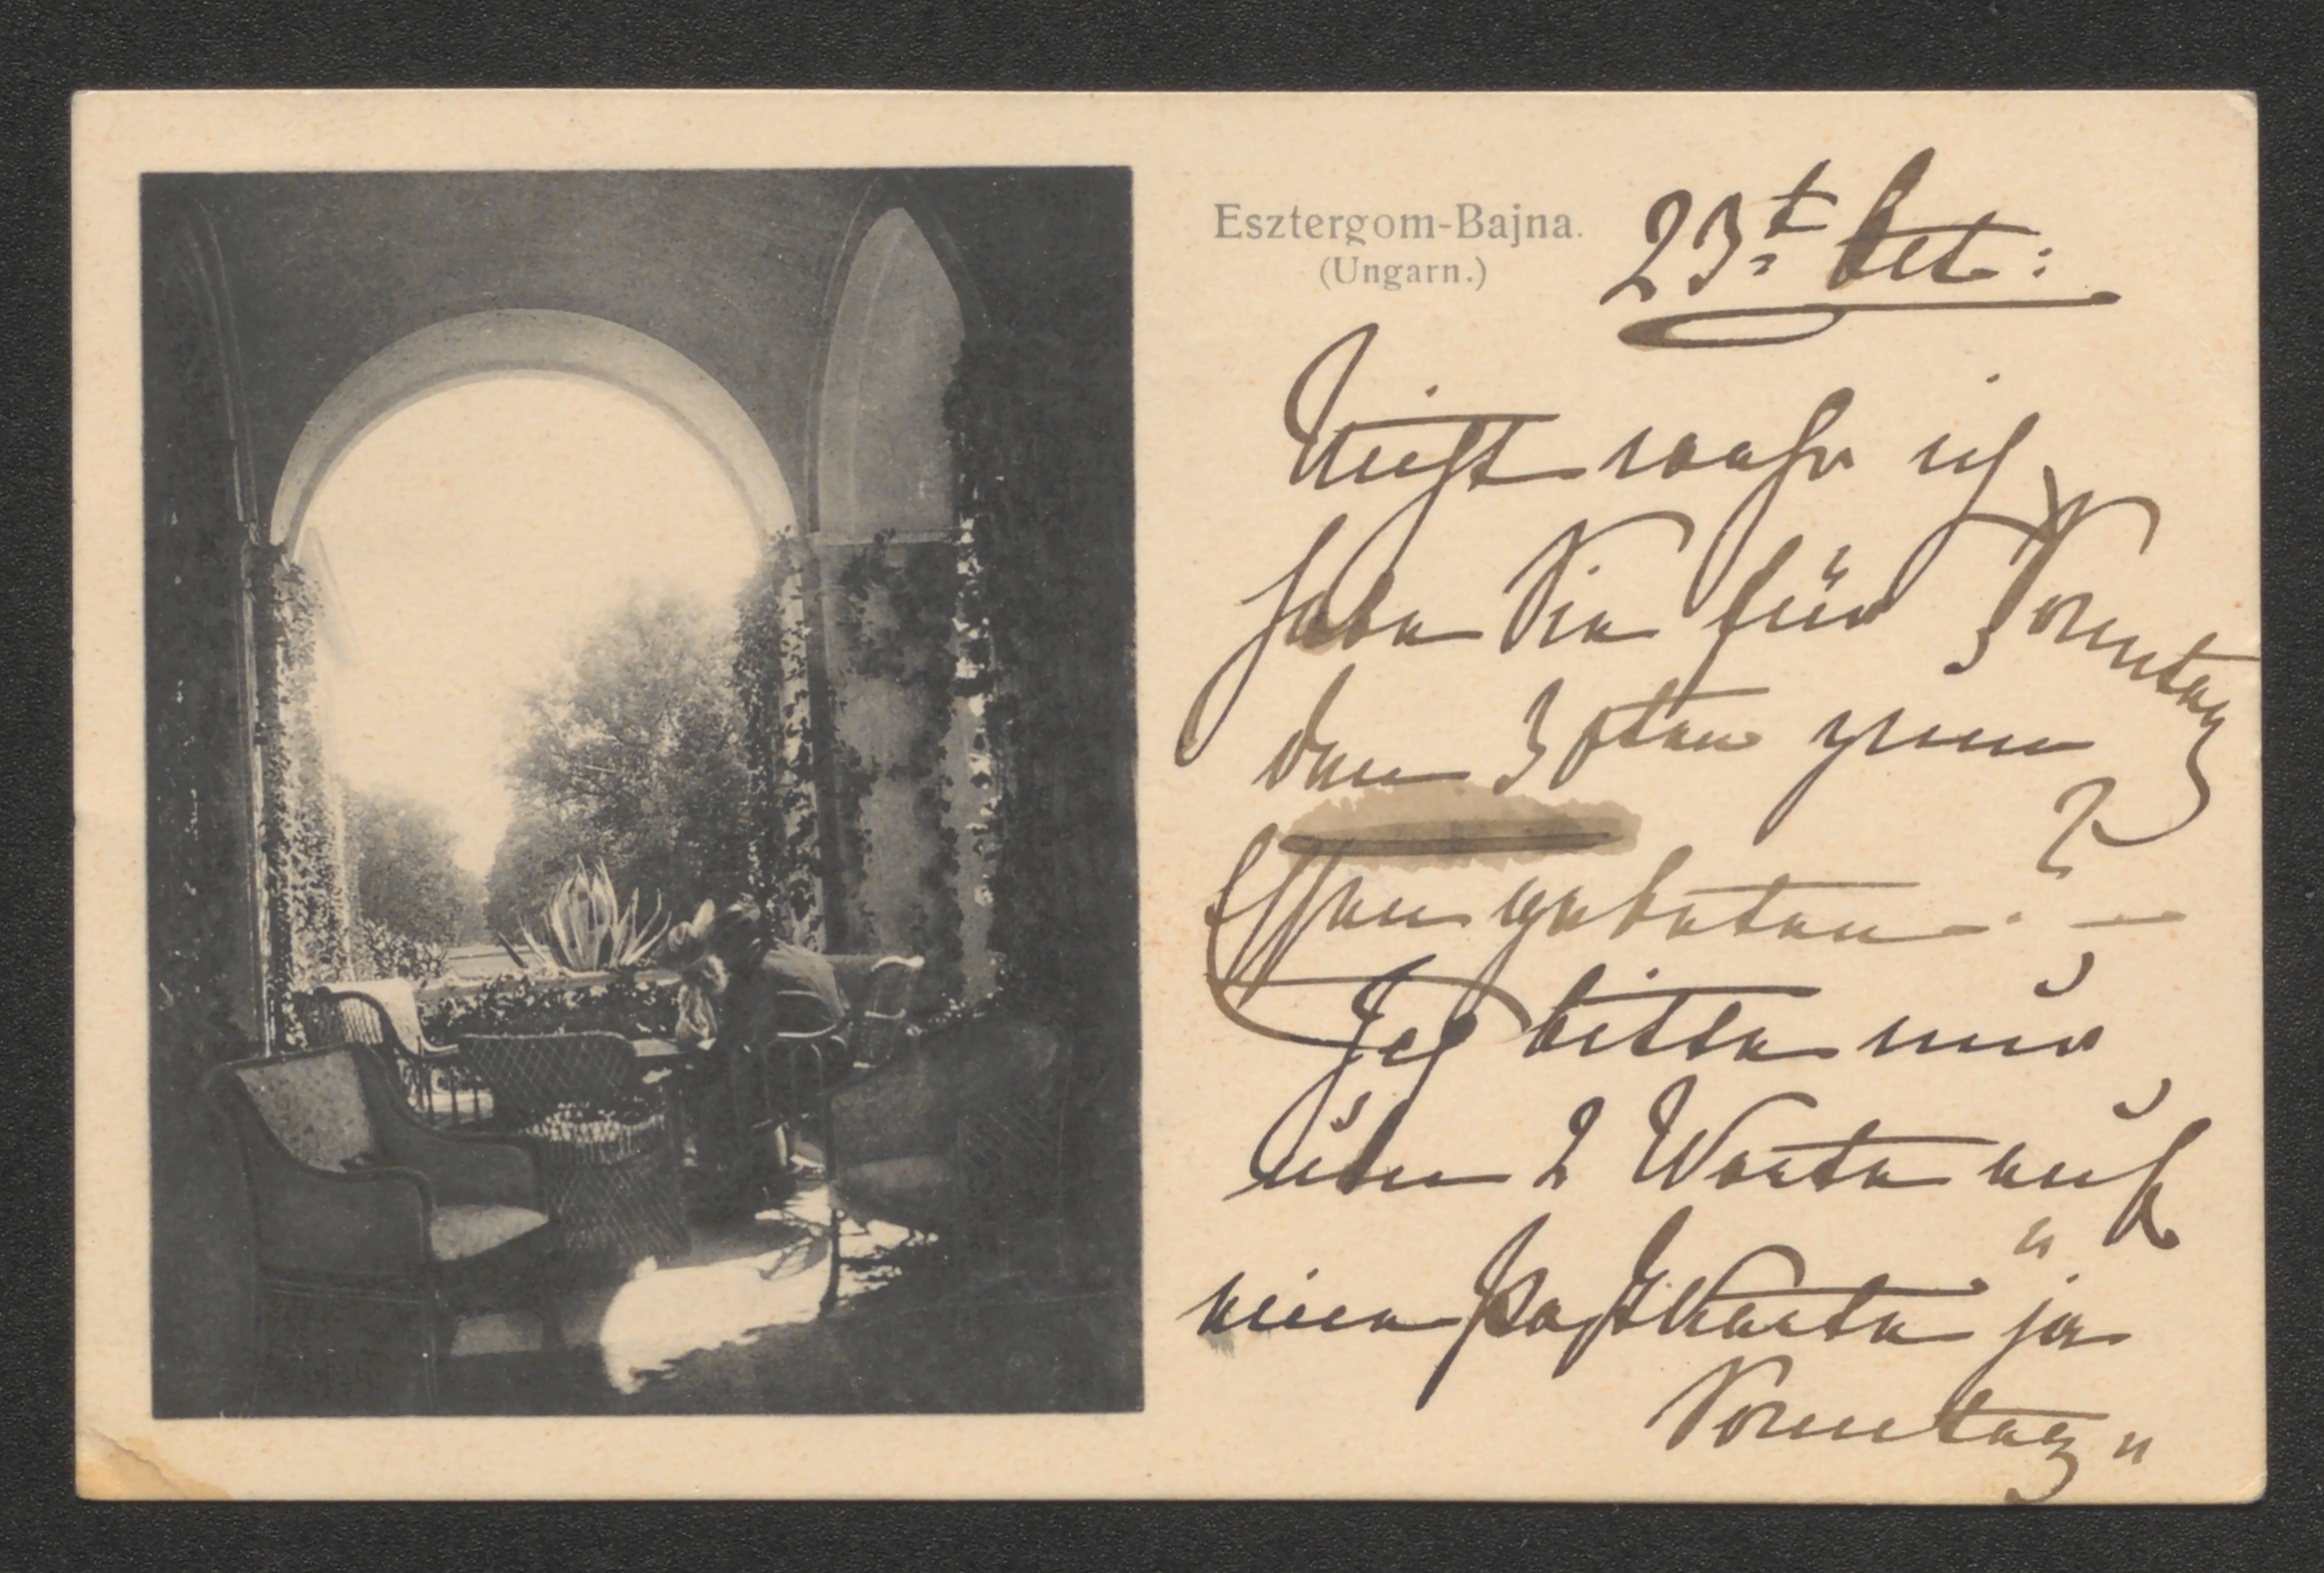 Esztergom-Bajna.
(Ungarn.)
23t Oct:
Nicht wahr ich
habe Sie für Sonntag
den 30ten zum
Essen gebeten. ? —
Ich bitte nur
über 2 Worte auf
einer Postkarte „ja
Sonntag"